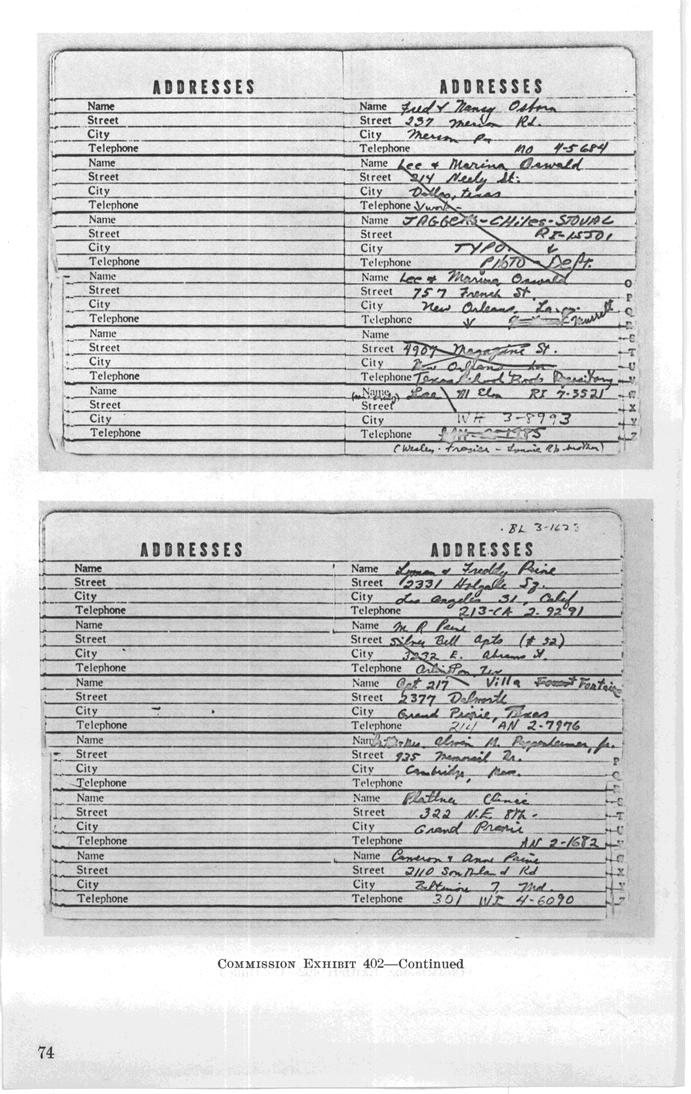 ADDRESSES
ADDRESSES
Name
Street
City
Telephone
Name
Street
City
Telephone
Name
Street
City
Telephone
Name
Street
City
Telephone
Name
Street
City
Telephone
Name
Street
City
Telephone
Name Fred & Nancy Osborn
Street 237 Merion Rd.
City Merion Pa
Telephone MO 4-5684
Name Lee & Marina Oswald
Street 214 Neely St.
City Dallas, Texas
Telephone work -
Name JAGGERS-CHiles-STOVAL
Street RI-15501
City TYPO.
Telephone PHOTO - Dept.
Name Lee & Marina Oswald
Street 757 French St.
City New Orleans, La.
Telephone Murrett
Name
Street 4907 Magazine St.
City New Orleans La
Telephone Texas School Book Depository
Name Lee M Elm RI 7-3521
Street
City WH 3-8993
Telephone
(Wesley Frazier - Linnie R's brother)
BL 3-1623
ADDRESSES
ADDRESSES
Name
Street
City
Telephone
Name
Street
City
Telephone
Name
Street
City
Telephone
Name
Street
City
Telephone
Name
Street
City
Telephone
Name
Street
City
Telephone
Name Lyman & Freddy Paine
Street 2331 Holgate Sq.
City Los Angeles 31, Calif
Telephone 213-CA 2-9291
Name M R Paine
Street Silver Bell Apts (# 32)
City 3232 E. Abrams St.
Telephone Arlington, Tex
Name Apt 217 Villa Fontaine
Street 2377 Dalworth
City Grand Prairie, Texas
Telephone 214 AN 2-7976
Name Mrs. Alwin M. Pappenheimer, Jr.
Street 935 Memorial Dr.
City Cambridge, Mass.
Telephone
Name Plattner Clinic
Street 322 N.E 8th -
City Grand Prairie
Telephone AN 2-1682
Name Cameron & Anne Paine
Street 2110 Southland Rd
City Baltimore 7, Md.
Telephone 301 WI 4-6090
COMMISSION EXHIBIT 402—Continued
74